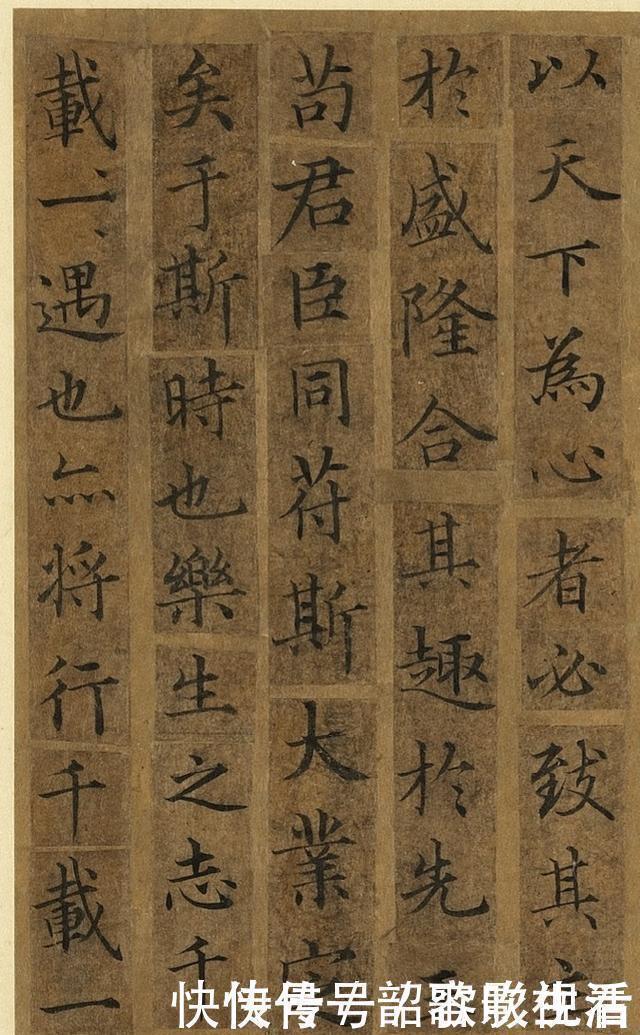 以天下為心者必致其
於盛隆合其趣於先
苟君臣同苻斯大業定
矣于斯時也樂生之志千
載一遇也亦将行千載一
快传号